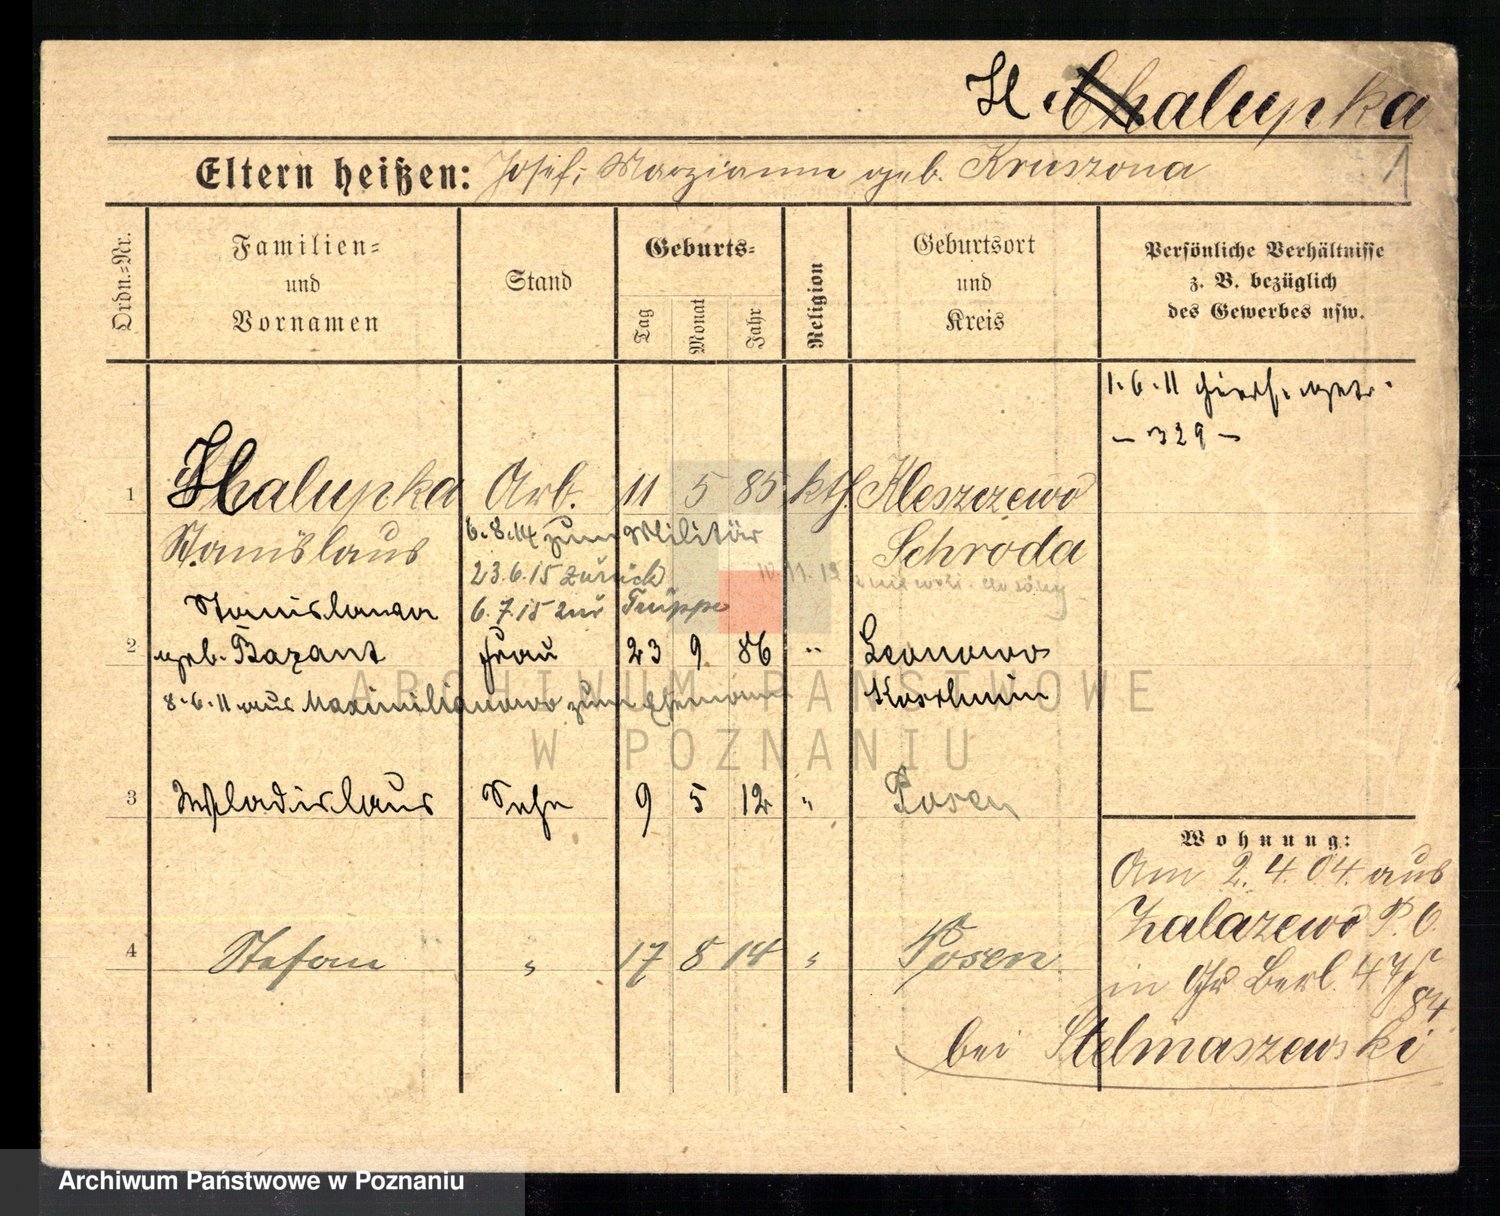 H Chalupka
Eltern heißen: Josef, Marzianne geb. Kruszona
1
Ordn.-Nr.
Familien- und Vornamen
Stand
Geburts-
Tag Monat Jahr
Religion
Geburtsort und Kreis
Persönliche Verhältnisse z. B. bezüglich des Gewerbes usw.
1.6.11
– 329 –
1 Halupka Arb. 11 5 85 kth. Kleszczewo
Stanislaus Schroda
6.8.14 zum Militär
23.6.15 zurück 10.11.19
6.7.15 zur Truppe
Stanislawa
2 geb. Bazant Frau 23 9 86 " Leonowo
8.6.11 aus Maximilianowo zum Ehemann Koschmin
3 Wladislaus Sohn 9 5 12 " Posen
4 Stefan " 17 8 14 " Posen
Wohnung:
Am 2.4.04. aus
Zalazewo P. O.
in Gr Berl. 47/
84
bei Stelmaszewski
ARCHIWUM PAŃSTWOWE
W POZNANIU
Archiwum Państwowe w Poznaniu